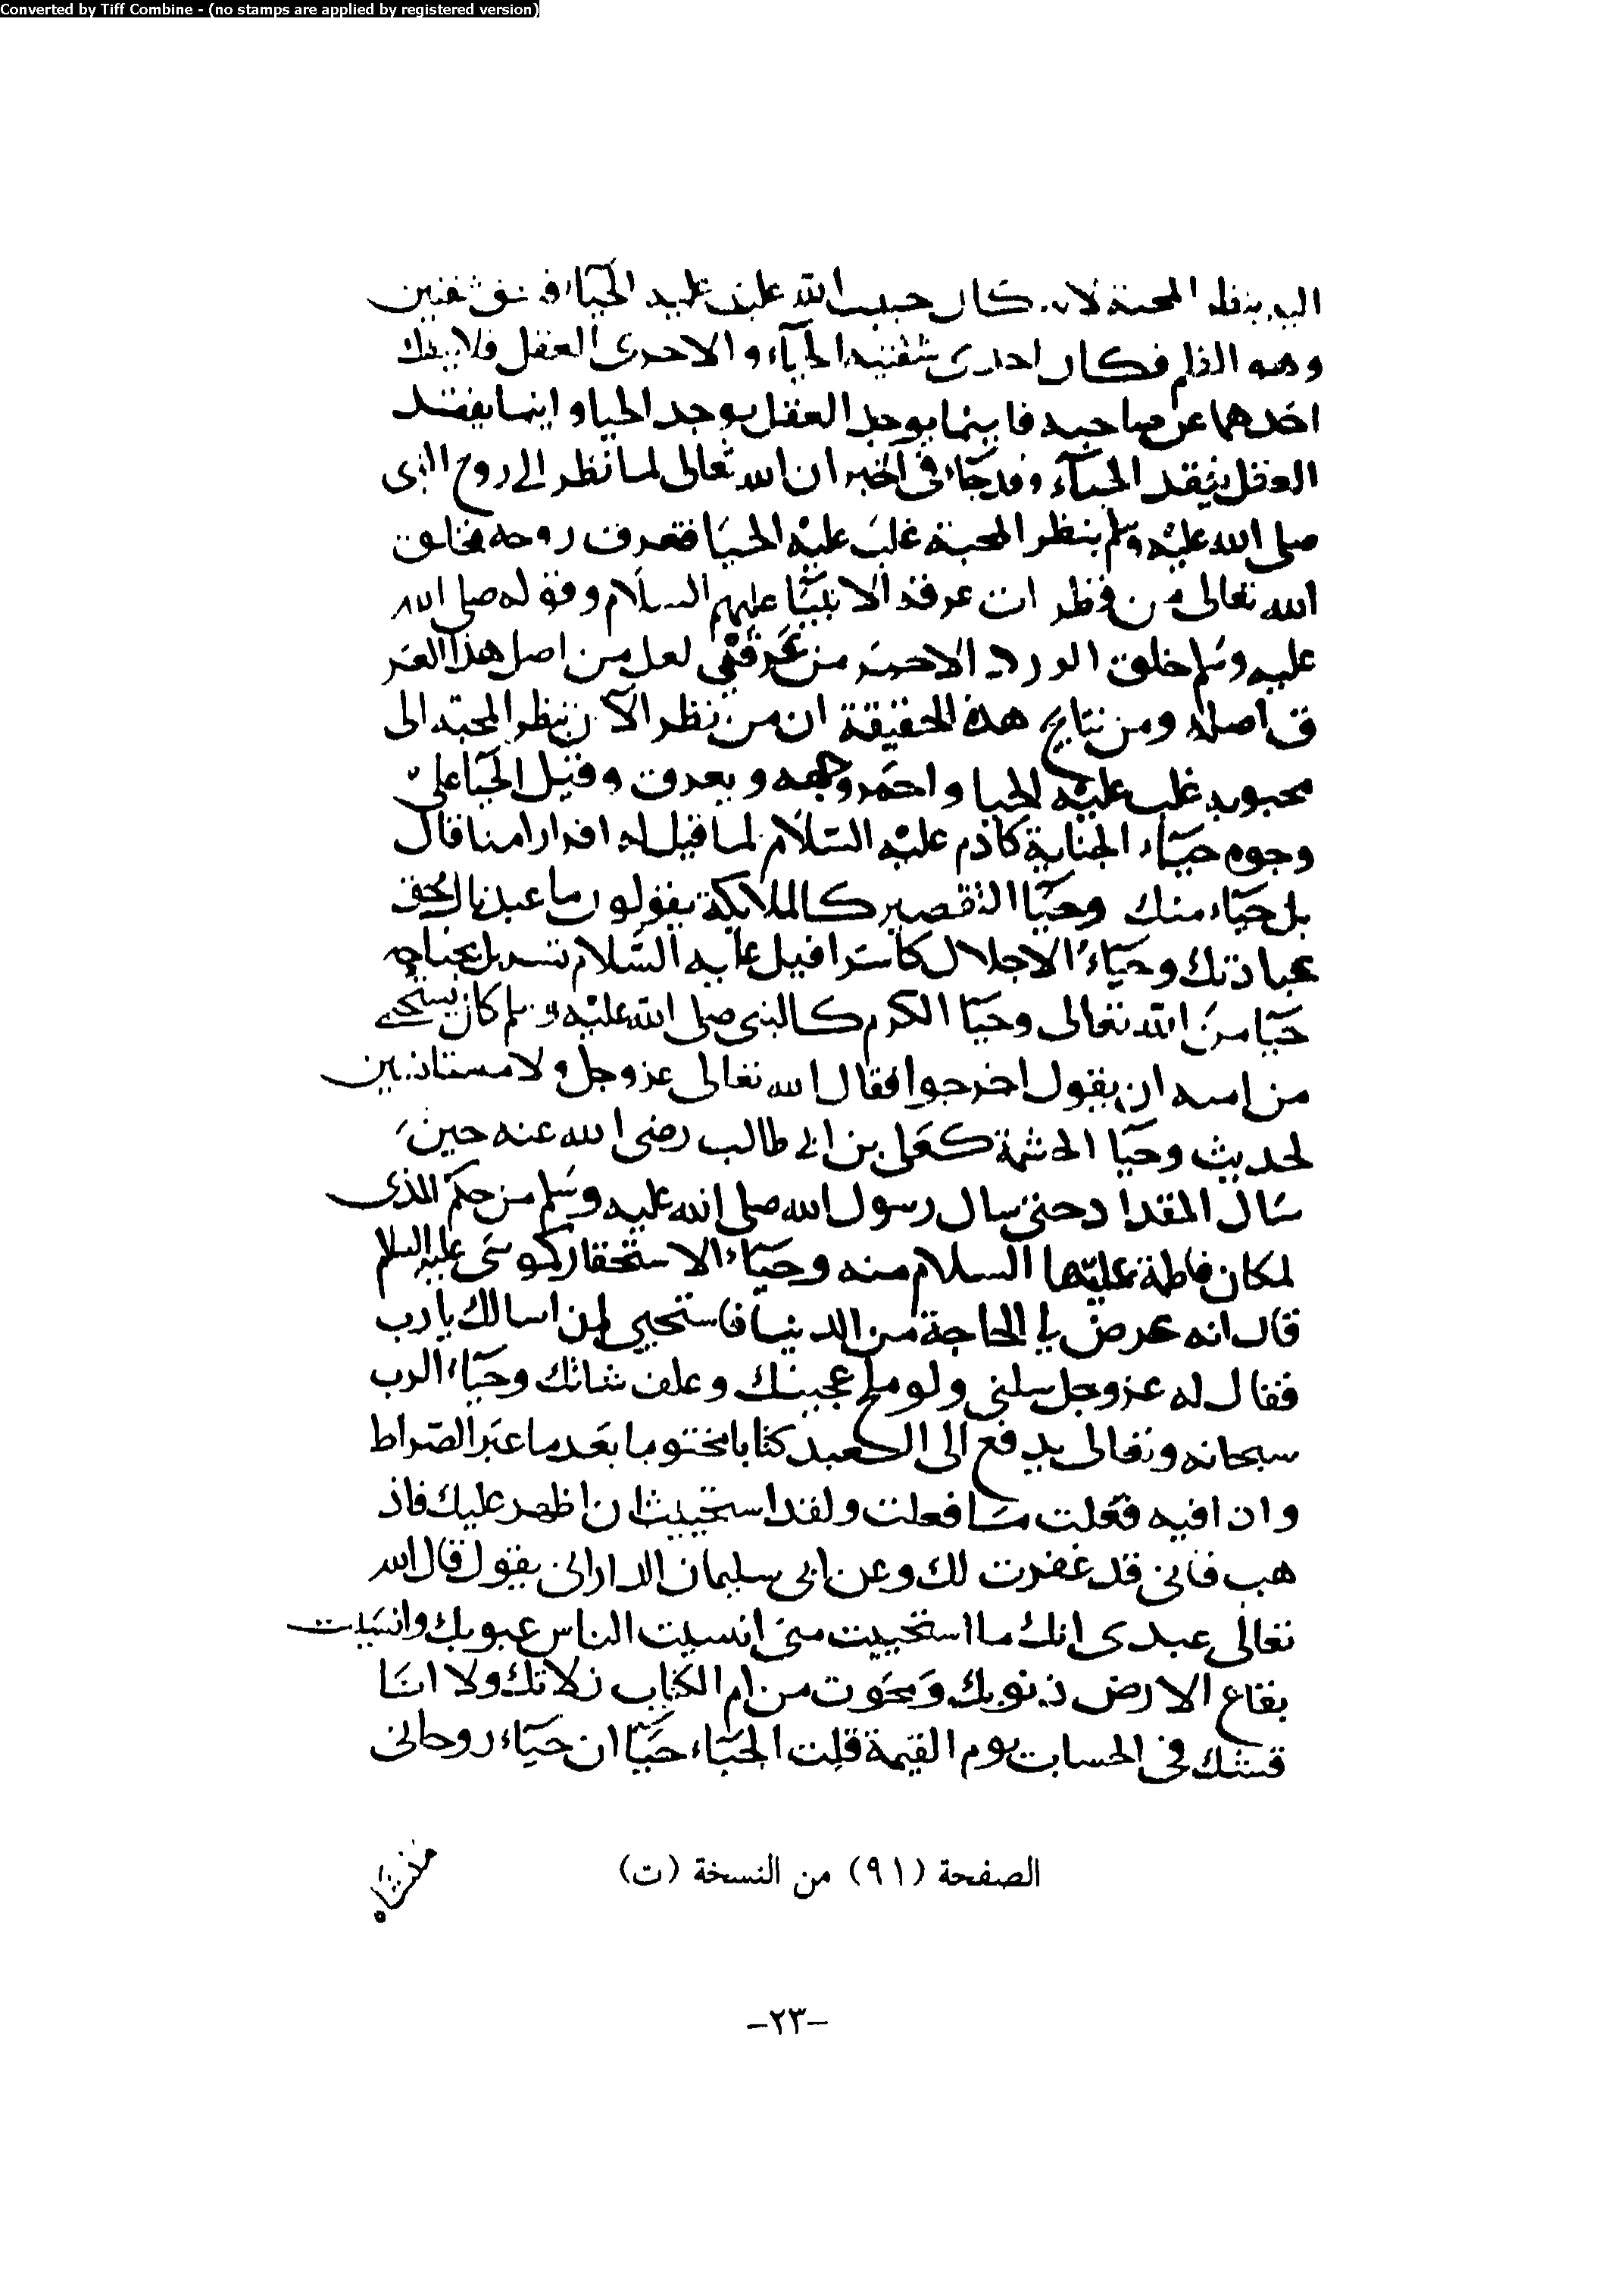 Converted by Tiff Combine - (no stamps are applied by registered version)
اليه بنظر المحبة لانه كان حبيب الله غلبت عليه الحيآء فشق شقتين
وهو القلم فكان احدى شقتيه الحيآء والاخرى العقل فلا ينفك
احدهما عن صاحبه فاينما يوجد العقل يوجد الحيا واينما يفقد
العقل يفقد الحيآء وقد جاء في الخبر ان الله تعالى لما نظر الى روح النبى
صلى الله عليه وسلم بنظر المحبة غلب عليه الحيا فتعرق روحه فخلق
الله تعالى من قطرات عرقه الانبيا عليهم السلام وقوله صلى الله
عليه وسلم خلق الورد الاحمر من عرقى لعل من اصل هذا العر
ق اصله ومن نتايج هذه الحقيقة ان من نظر الآن بنظر المحبة الى
محبوبه غلب عليه الحيا واحمر وجهه ويعرق وقيل الحيا على
وجوه حيآء الجناية كآدم عليه السلام لما قيل له افرارا منا قال
بل حيآء منك وحيا التقصير كالملائكة يقولون ما عبدناك حق
عبادتك وحيآء الاجلال كاسرافيل عليه السلام تسربل بجناحه
حيا من الله تعالى وحيا الكرم كالنبى صلى الله عليه وسلم كان يستحى
من امته ان يقول اخرجوا فقال الله تعالى عز وجل ولا مستانسين
لحديث وحيا الحشمة كعلى بن ابى طالب رضى الله عنه حين
سال المقداد حتى سال رسول الله صلى الله عليه وسلم من حكم المذى
لمكان فاطمة عليها السلام منه وحيآء الاستحقار كموسى عليه السلام
قال انه عرض لى الحاجة من الدنيا فاستحيى ان اسالك يا رب
فقال له عز وجل سلنى ولو ملح عجينك وعلف شاتك وحيآء الرب
سبحانه وتعالى يدفع الى العبد كتابا مختوما بعد ما عبر الصراط
واذا فيه فعلت ما فعلت ولقد استحييت ان اظهر عليك فاذ
هب فانى قد غفرت لك وعن ابى سليمان الدارانى يقول قال الله
تعالى عبدى انك ما استحييت منى انسيت الناس عيوبك وانسيت
بقاع الارض ذنوبك ومحوت من ام الكتاب زلاتك ولا انا
قشك فى الحساب يوم القيمة قلت الحيآء حيآان حيآء روحانى
منشاه
الصفحة (٩١) من النسخة (ت)
–٢٣–